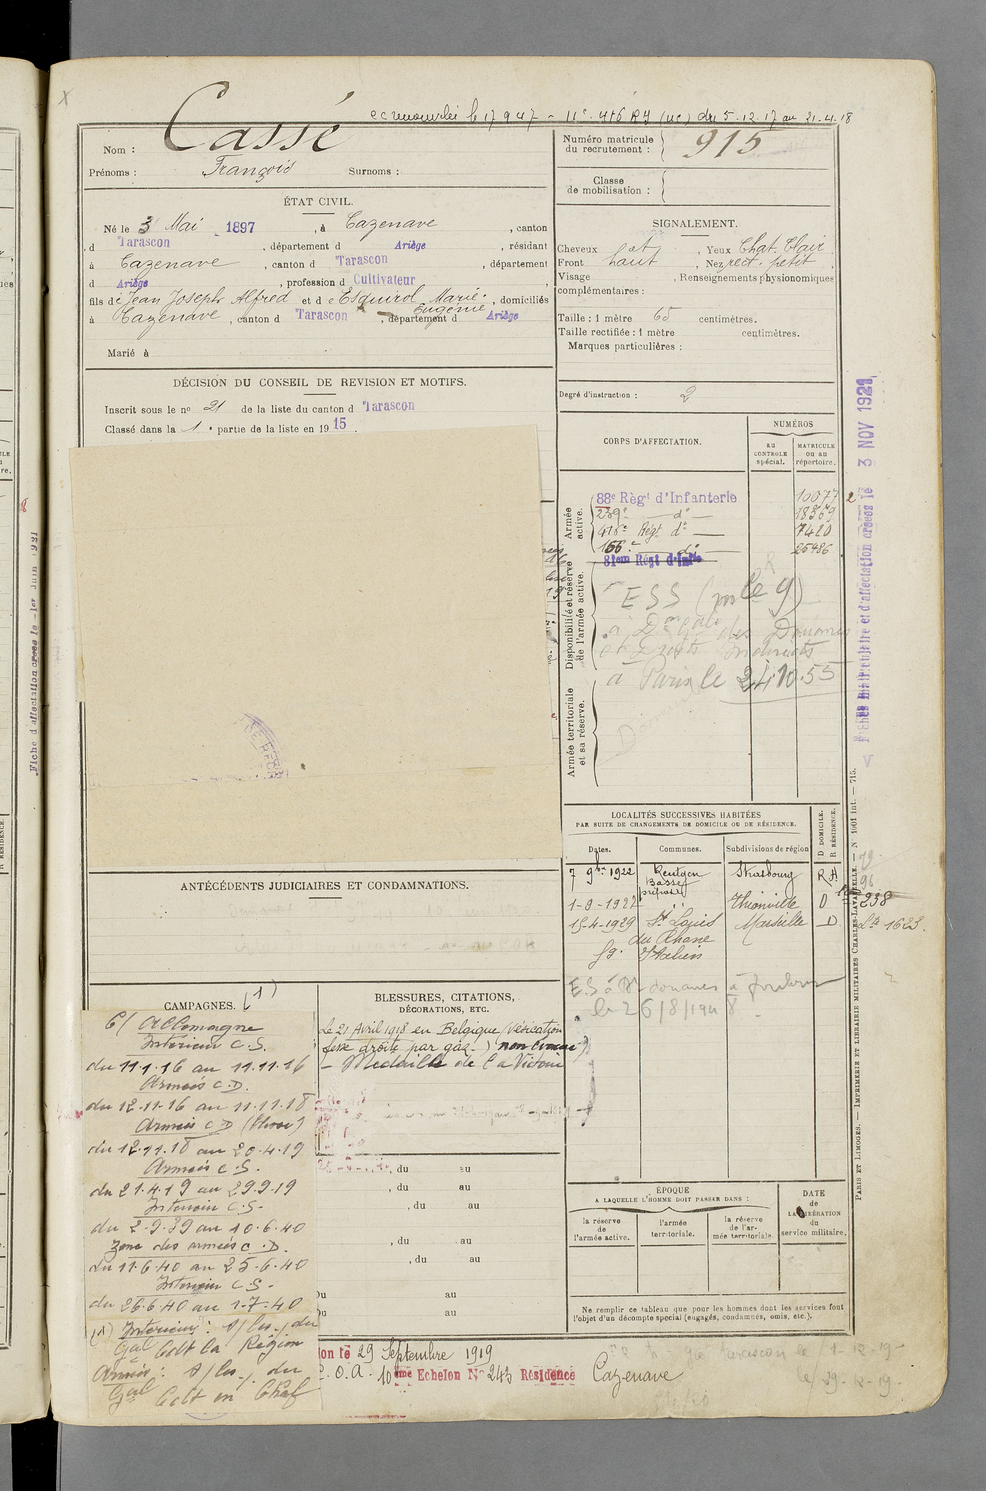 11e 416 RI (uc) du 5.12.17 au 21.4.18
Cassé
Nom :
Prénoms : François Surnoms :
Numéro matricule du recrutement : 915
Classe de mobilisation :
ÉTAT CIVIL.
Né le 3 Mai 1897, à Cazenave, canton
d Tarascon, département d Ariège, résidant
à Cazenave, canton d Tarascon, département
d Ariège, profession d Cultivateur
fils de Jean Joseph Alfred et de Esquirol Marie Eugénie, domiciliés
à Cazenave, canton d Tarascon, département d Ariège
Marié à
SIGNALEMENT.
Cheveux chat Yeux Chat. Clair
Front haut, Nez rect. petit,
Visage, Renseignements physionomiques
complémentaires :
Taille : 1 mètre 65 centimètres.
Taille rectifiée : 1 mètre centimètres.
Marques particulières :
Degré d'instruction : 2
DÉCISION DU CONSEIL DE REVISION ET MOTIFS.
Inscrit sous le no 21 de la liste du canton d Tarascon
Classé dans la 1e partie de la liste en 1915.
CORPS D'AFFECTATION.
NUMÉROS
AU CONTROLE spécial.
MATRICULE OU AU répertoire.
Armée active.
88e Régt d'Infanterie 10077
239e d° 18369
416e Régt d° 7420
166e d° 25486
81eme Regt d'Infie
Disponibilité et réserve de l'armée active.
ESS (
des Douanes
et Droits Indirects
à Paris le 24.10.55
Armée territoriale et sa réserve.
Fiches matriculaire et d'affectation créées le 3 NOV 1921
Fiche d'affectation créée le 1er Juin 1921
LOCALITÉS SUCCESSIVES HABITÉES
PAR SUITE DE CHANGEMENTS DE DOMICILE OU DE RÉSIDENCE.
Dates. Communes. Subdivisions de région
D DOMICILE. R RÉSIDENCE.
7 9bre 1922 Rentgen Basse préposé Strasbourg R
1-9-1922 " Thionville D 238
15-4-1929 St Louis du Rhône Marseille D 1623
ES à Don douanes à
le 26/8/1948.
ANTÉCÉDENTS JUDICIAIRES ET CONDAMNATIONS.
CAMPAGNES. (1)
C/ Allemagne
Intérieur C.S.
du 11.1.16 au 11.11.16
Armées C.D.
du 12-11-16 au 11.11.18
Armées C D
du 12.11.18 au 20.4.19
Armées C.S.
du 21.4.19 au 29.9.19
Intérieur C.S.
du 2.9.39 au 10.6.40
Zone des armées C.D.
du 11.6.40 au 25.6.40
Intérieur C.S.
du 26.6.40 au 1.7.40
(1) Intérieur : s/ les j. du
Gal Cdt la Région
Armée : s/ les j. du
Gal Cdt en Chef
BLESSURES, CITATIONS,
DÉCORATIONS, ETC.
Le 21 Avril 1918 en Belgique (Vésication
fesse droite par gaz) non évacué
- Médaille de la Victoire
, du au
, du au
, du au
, du au
, du au
Du au
Du au
ÉPOQUE
A LAQUELLE L'HOMME DOIT PASSER DANS :
la réserve de l'armée active.
l'armée territoriale.
la réserve de l'armée territoriale.
DATE de LA LIBÉRATION du service militaire.
Ne remplir ce tableau que pour les hommes dont les services font
l'objet d'un décompte spécial (engagés, condamnés, omis, etc.).
29 Septembre 1919
10eme Echelon No 243 Résidence Cazenave
PARIS ET LIMOGES. — IMPRIMERIE ET LIBRAIRIE MILITAIRES CHARLES-LAVAUZELLE. — N° 1001 int. — 715.